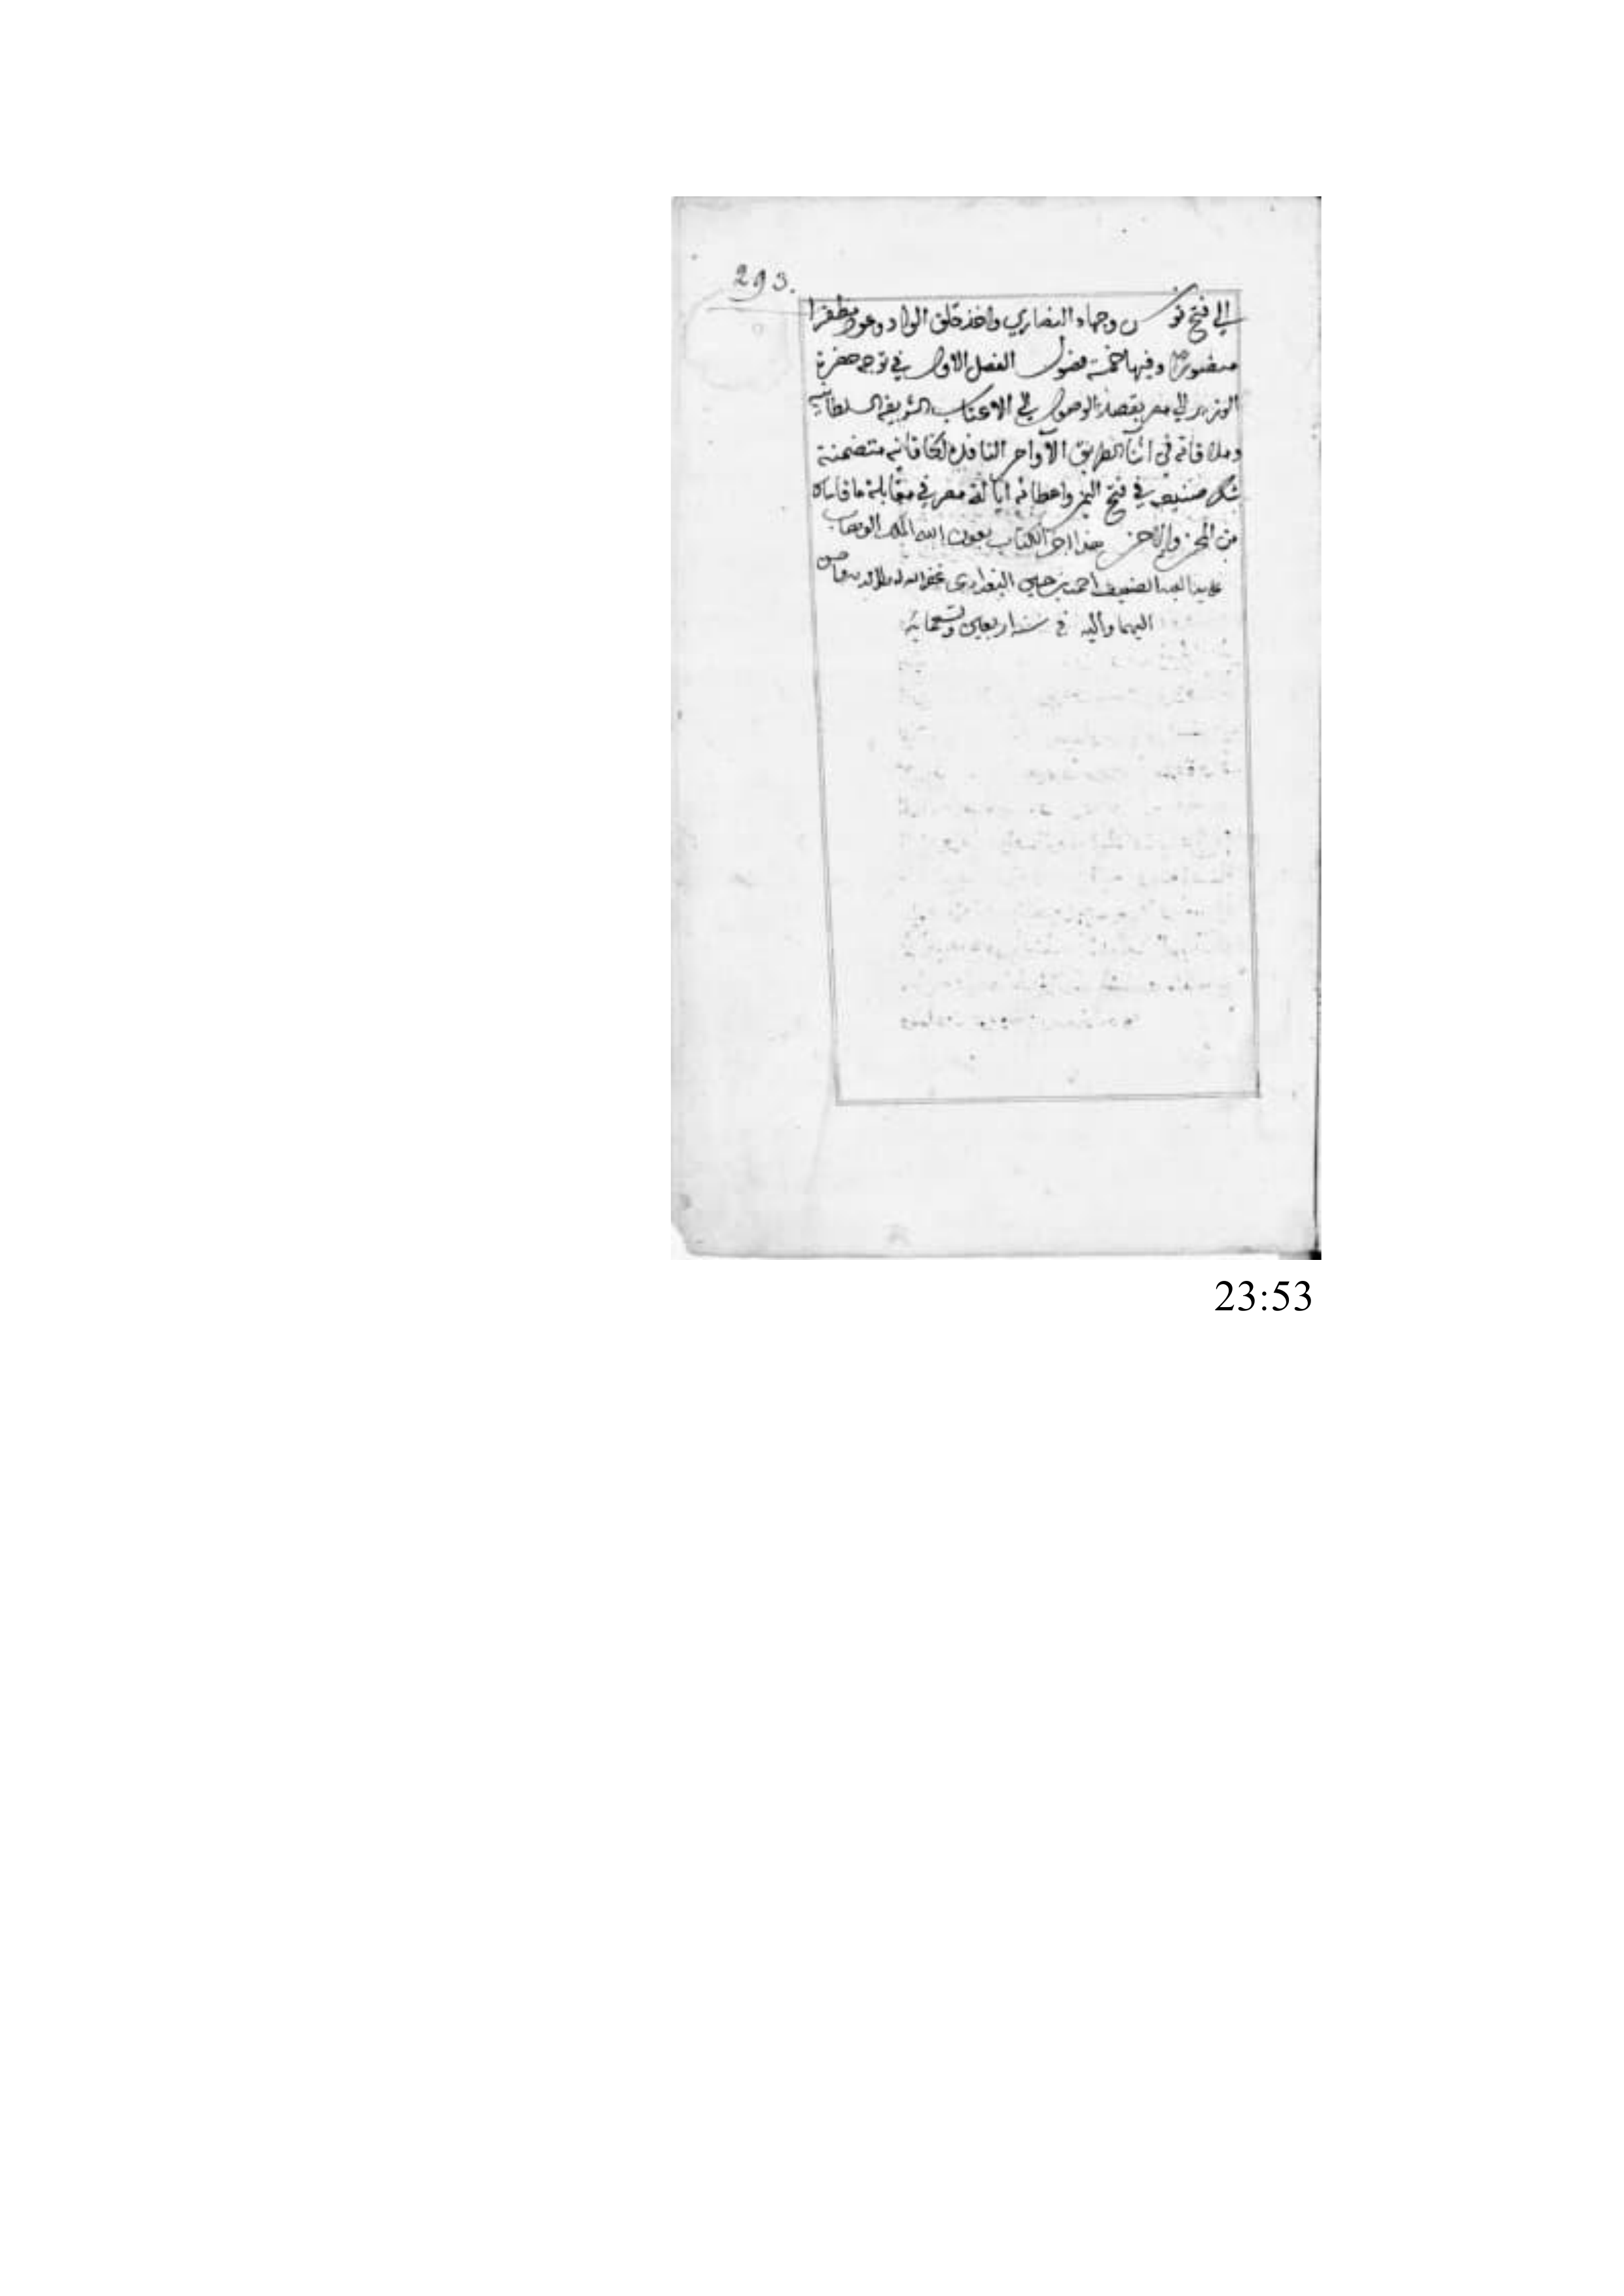 293.
الي فتح تونس وجهاد النصاري واخذ حلق الواد وعود مظفرا
منصورا وفيها خمسة فصول الفصل الاول في توجه حضرة
الوزير الي مصر بقصد الوصول الي الاعتاب الشريفة السلطانية
وملاقاته في اثنا الطريق الاوامر النافذة الخاقانية متضمنة
شكر صنيعه في فتح اليمن واعطائه ايالة مصر في مقابلة ما قاساه
من المحن والاحن هذا اخر الكتاب بعون الله الملك الوهاب
العبد الضعيف احمد بن البغدادي غفر الله له ولوالديه
اليهما واليه في سنة اربعين وتسعماية
23:53